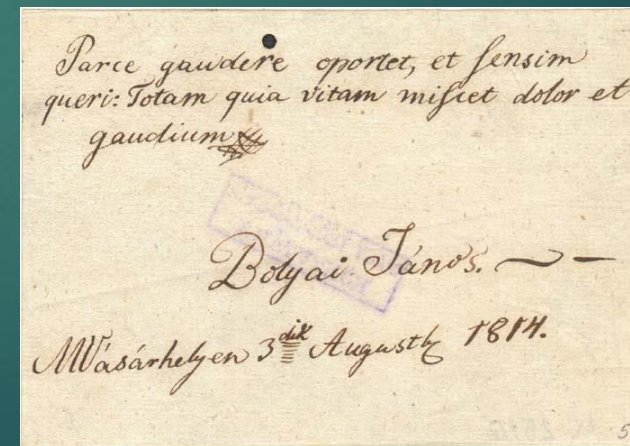 Parce gaudere oportet, et sensim
queri: Totam quia vitam miscet dolor et
gaudium
Bolyai János.
MVásárhelyen 3 dik Augustb 1814.
5